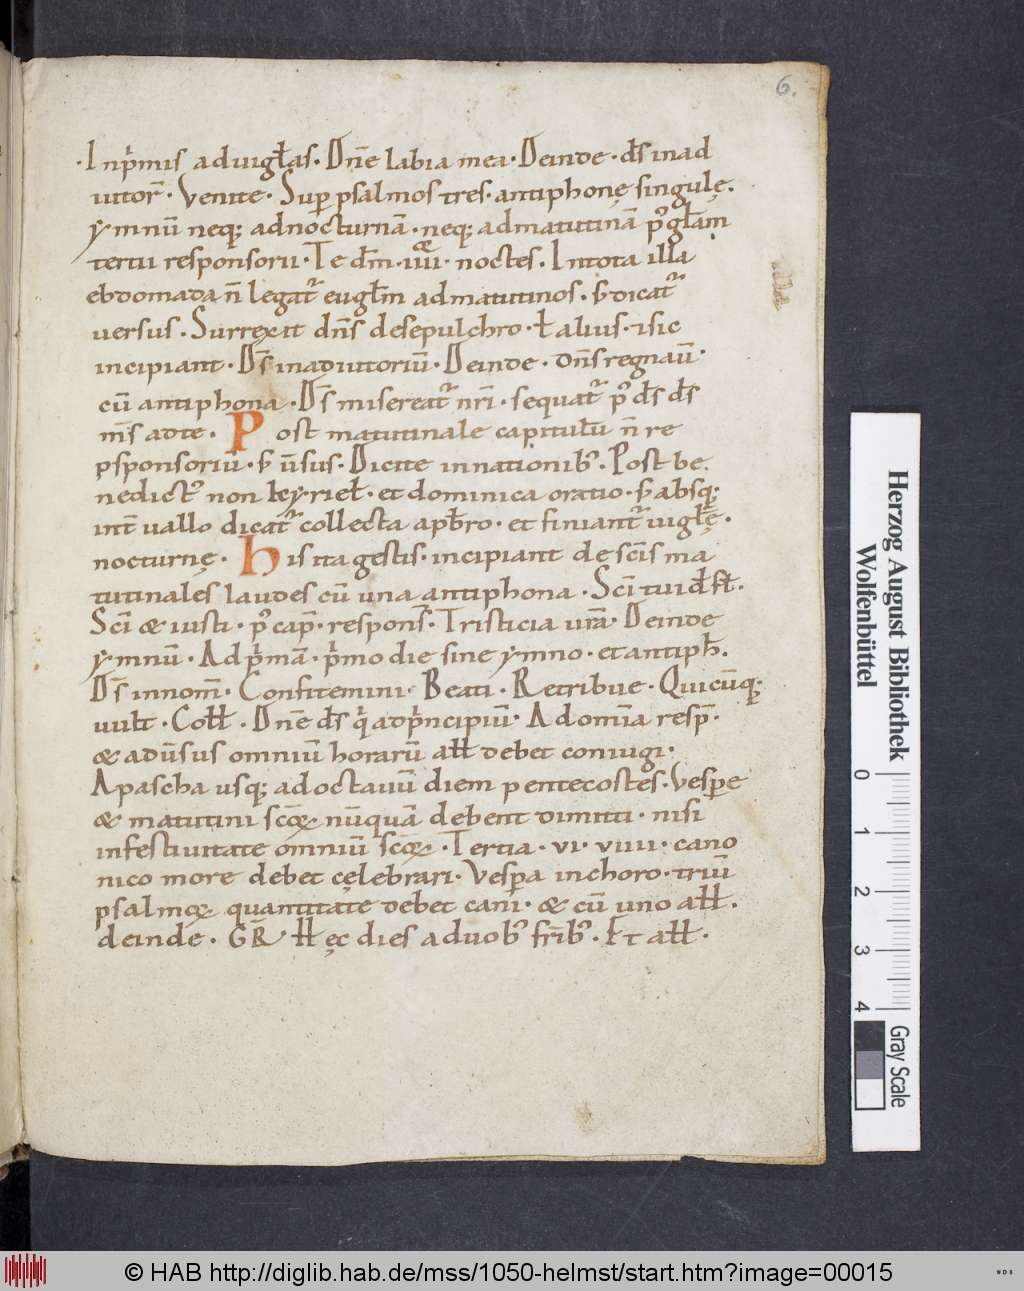 6.
·I np̄mis ad uigłas· Dn̄e labia mea· Deinde· ds̄ inad
iutor̄· Venite· Sup psalmos tres· antiphonę singulę.
ymnū neq; ad nocturnā· neq; ad matutinā p᷒ głam
tertii responsorii· Te dm̄· noctes. In tota illa
ebdomada n̄ legat᷑ eugłm ad matutinos. s̄ dicat᷑
uersus. Surrexit dn̄s de sepulchro· ł alius· ⁊ sic
incipiant· Ds̄ in adiutoriū· Deinde· dn̄s regnauˉ·
cū antiphona· Ds̄ misereat᷑ nr̄i· sequat᷑ p᷒ ds̄ ds̄
ms̄ ad te· Post matutinale capitulū n̄ re
psponsoriū· s̄ ūsus· Dicite in nationib᷒. Post be
nedict᷒ non kyrieł· et dominica oratio· s̄ absq;
int̄uallo dicat᷑ collecta ap̄bro· et finiant᷑ uigłę·
nocturnę· His ita gestis· incipiant de sc̄is ma
tutinales laudes cū una antiphona· Sc̄i tui
Sc̄i & iusti· p᷒ cap̄· respons̄· Tristicia ur̄a· Deinde
ymnū· Ad p̄mā· p̄mo die sine ymno· et antiph̄.
Ds̄ in nom̄· Confitemini· Beati· Retribue· Quicūq;
uult· Cołł· Dn̄e ds̄ q̄i ad p̄ncipiū· A domīa resp̄·
& ad ūsus omniū horarū ałł debet coniugi·
A pascha usq; ad octauū diem pentecostes· Vespere
& matutini sc̄oꝝ nūquā debent dimitti· nisi
in festiuitate omniū sc̄oꝝ· Tertia· vi· viiii· cano
nico more debet cęlebrari· Vespera in choro· triū
psalmoꝝ quantitate debet cani· & cū uno ałł·
deinde· GR Hęc dies a duob᷒ fr̄ib᷒· Et ałł·
Herzog August Bibliothek
Wolfenbüttel
0 1 2 3 4
Gray Scale
© HAB http://diglib.hab.de/mss/1050-helmst/start.htm?image=00015